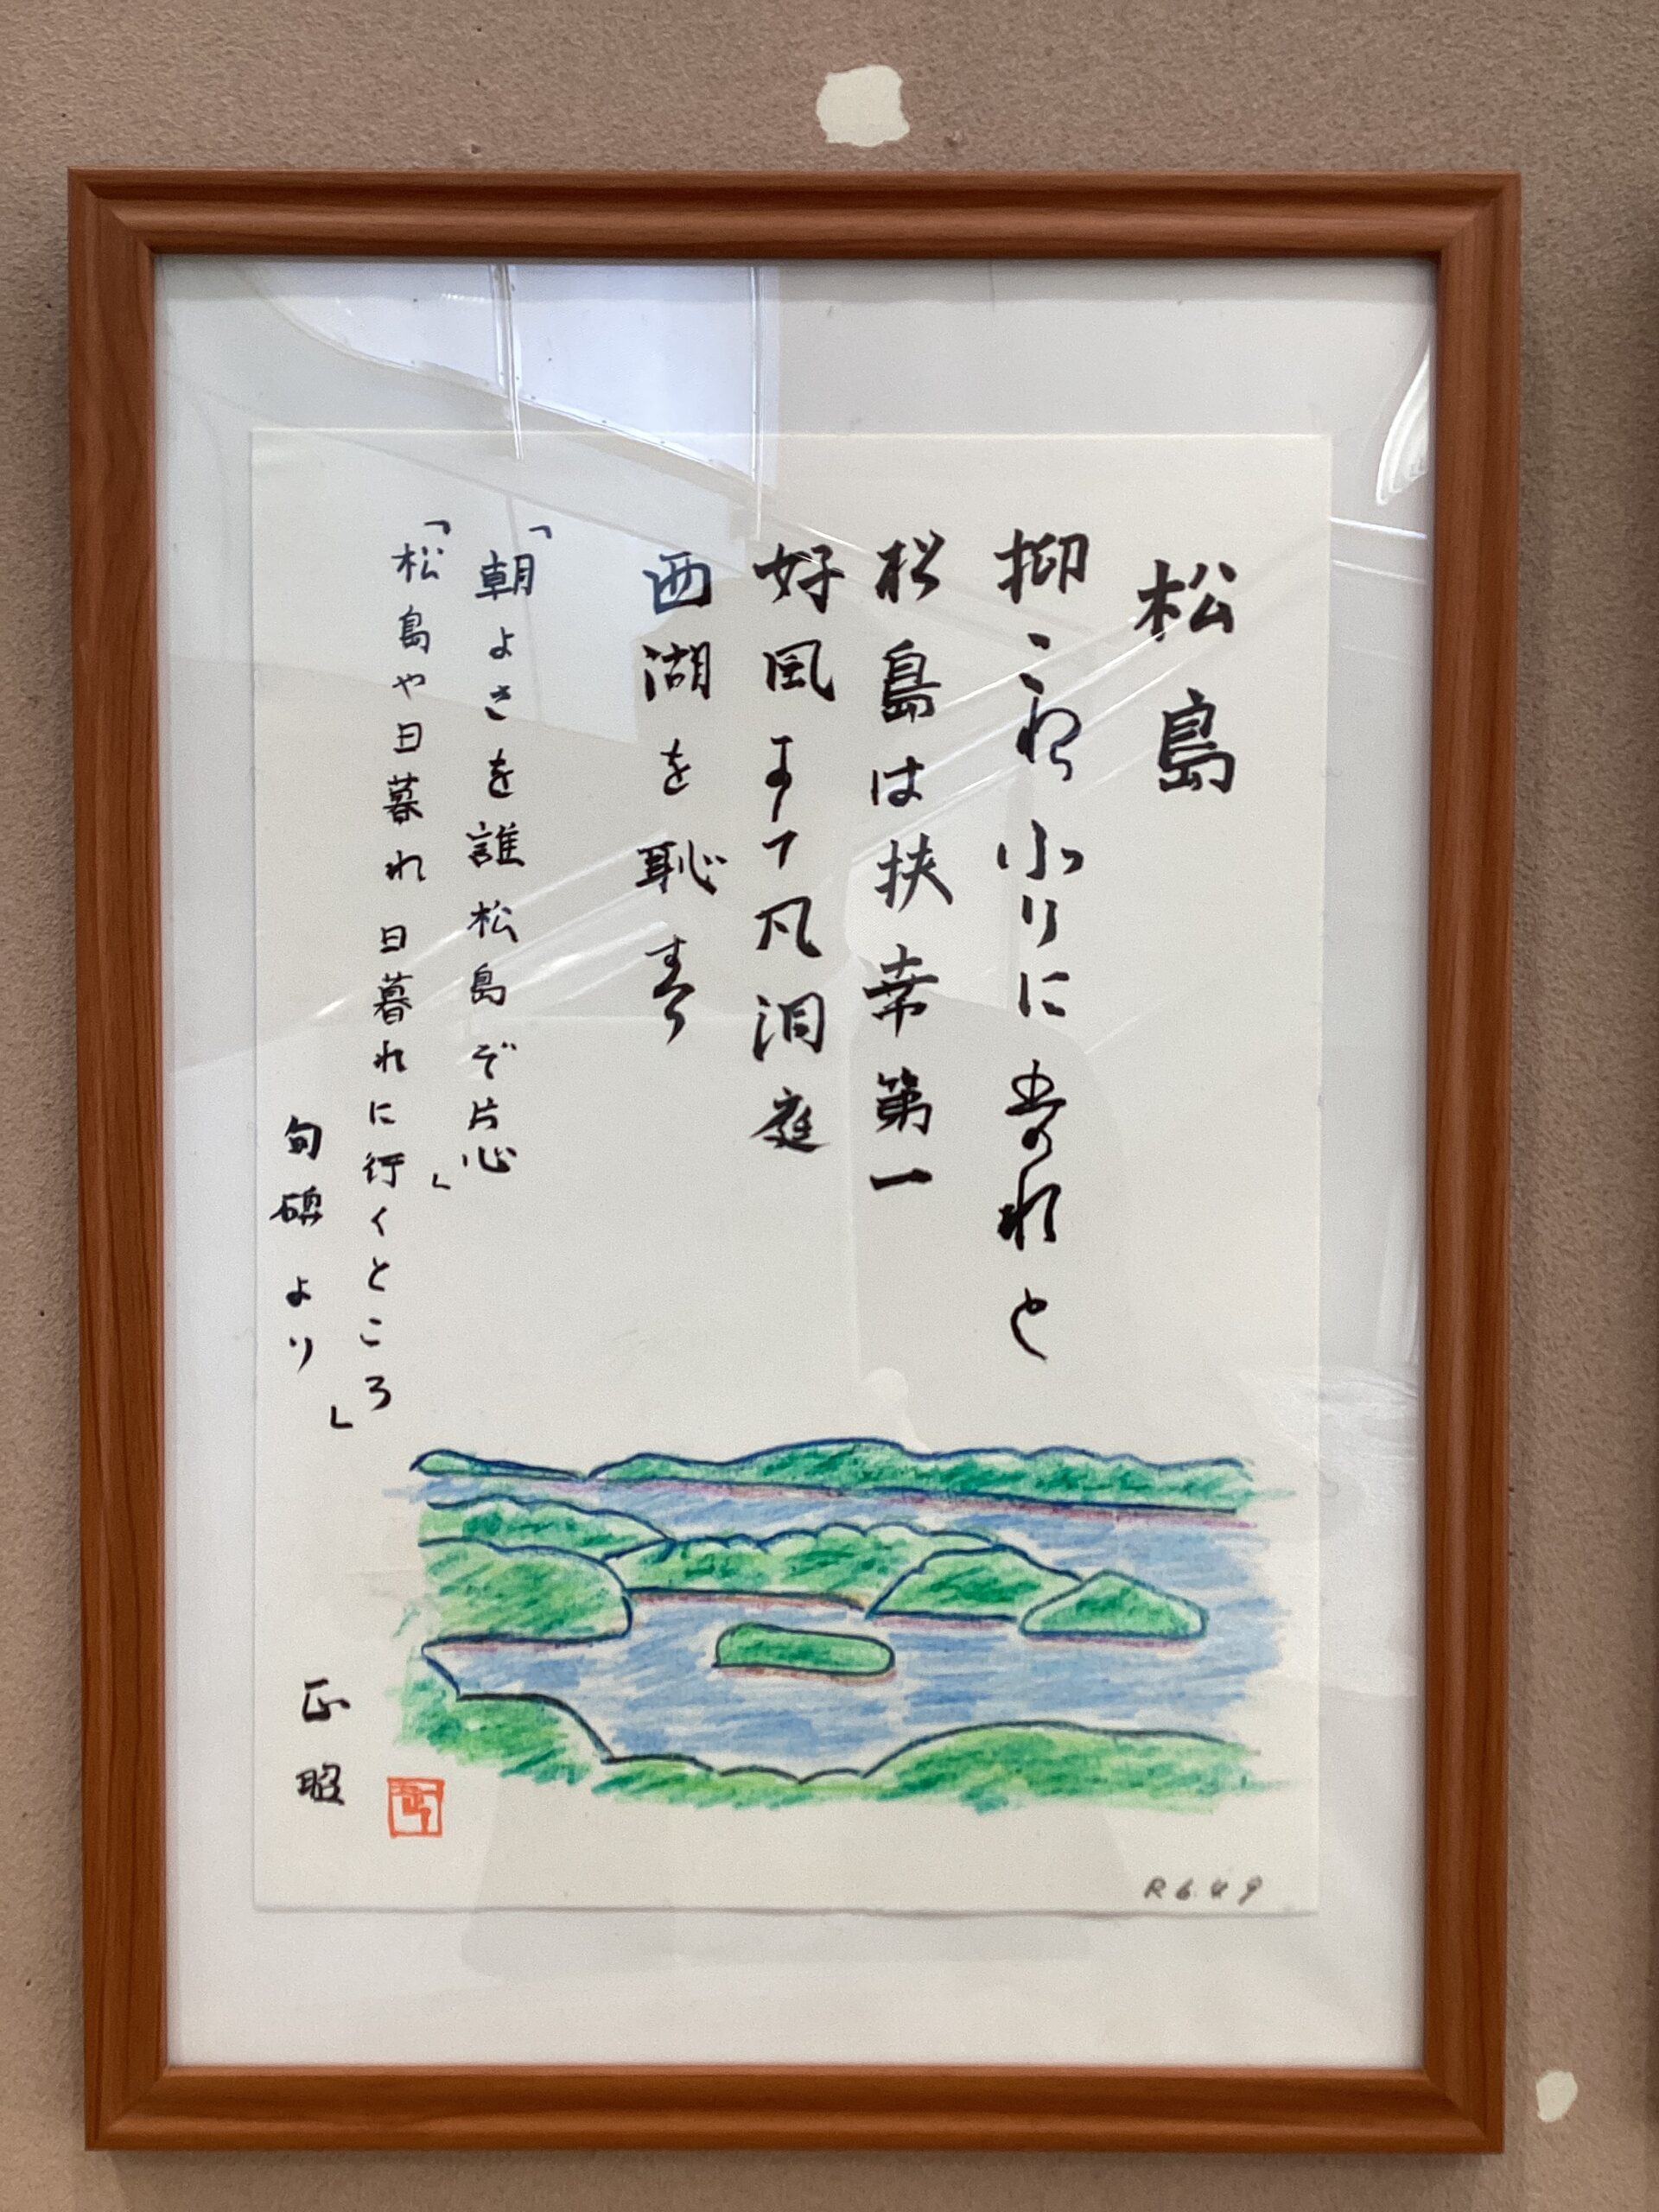 松島
抑
松島は扶桒第一
好風して凡洞庭
西湖を恥す
「朝よさを誰松島ぞ片心」
「松島や日暮れ日暮れに行くところ」
句碑より
正昭
R6.4.9